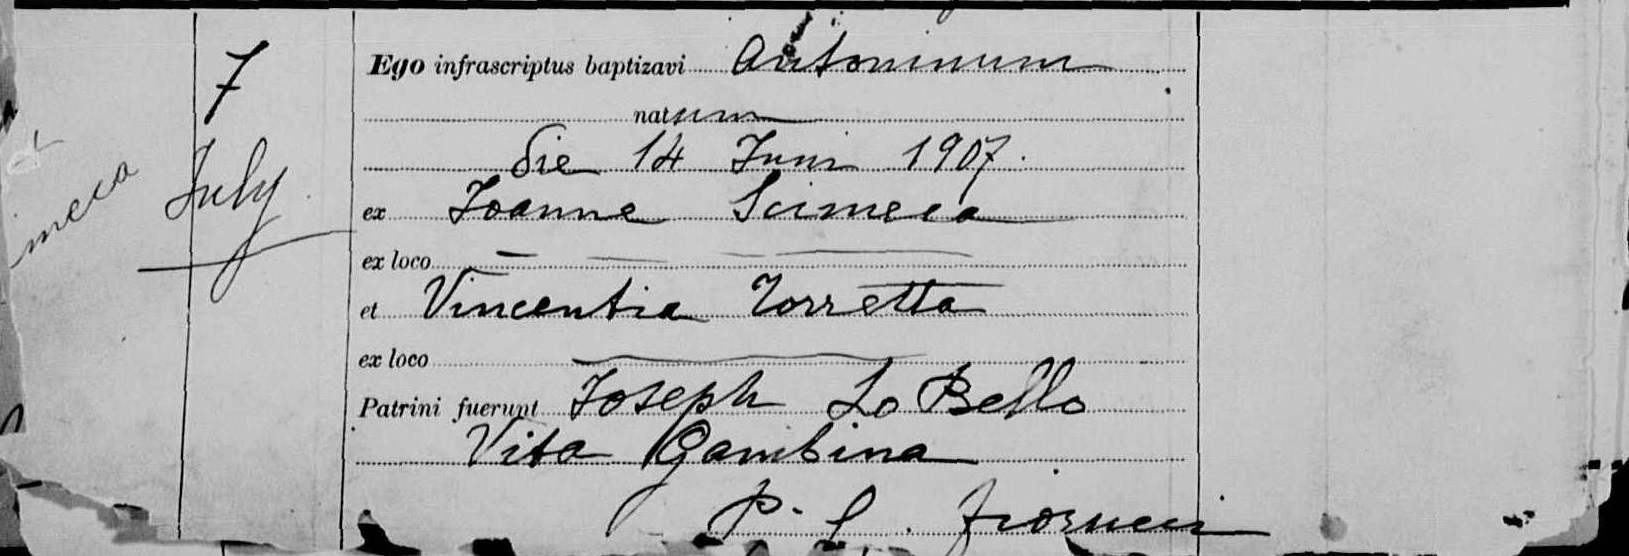 7
July
imeca
Ego infrascriptus baptizavi Antoninum
natum
die 14 Juni 1907.
ex Joanne Scimeca
ex loco
et Vincentia Torretta
ex loco
Patrini fuerunt Joseph Lo Bello
Vita Gambina
P. L. Fiorucci